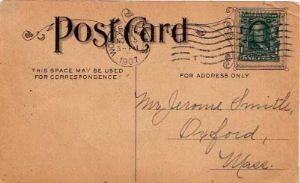 Post Card
1907
THIS SPACE MAY BE USED
FOR CORRESPONDENCE
FOR ADDRESS ONLY.
Mr Jerome Smith,
Oxford,
Mass.